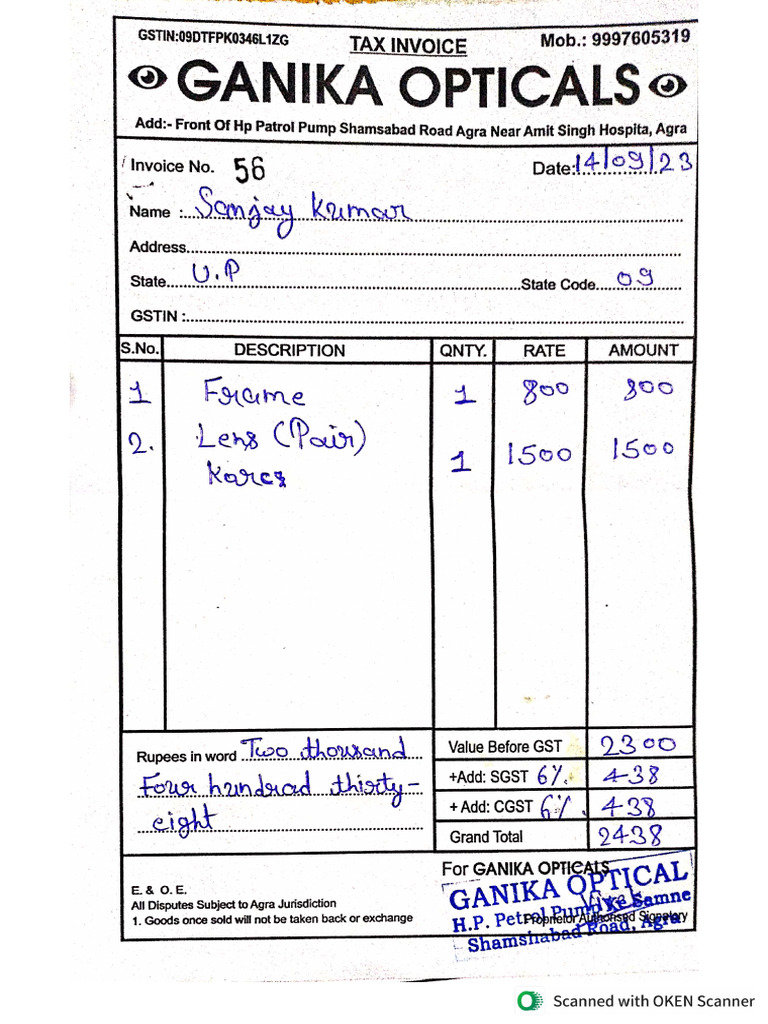 GSTIN:09DTFPK0346L1ZG TAX INVOICE Mob.: 9997605319
GANIKA OPTICALS
Add:- Front Of Hp Patrol Pump Shamsabad Road Agra Near Amit Singh Hospita, Agra
Invoice No. 56 Date: 14/09/23
Name : Sanjay Kumar
Address
State U.P State Code 09
GSTIN :
S.No. DESCRIPTION QNTY. RATE AMOUNT
1 Frame 1 800 800
2. Lens (Pair) 1 1500 1500
Rupees in word Two thousand
Four hundrad thirty-
eight
Value Before GST 2300
+Add: SGST 6%. 438
+ Add: CGST 6%. 438
Grand Total 2438
For GANIKA OPTICALS
E. & O. E.
All Disputes Subject to Agra Jurisdiction
1. Goods once sold will not be taken back or exchange
GANIKA OPTICAL
H.P. Petrol Pump Ke Samne
Proprietor Authorised Signetory
Shamshabad Road, Agra
Scanned with OKEN Scanner